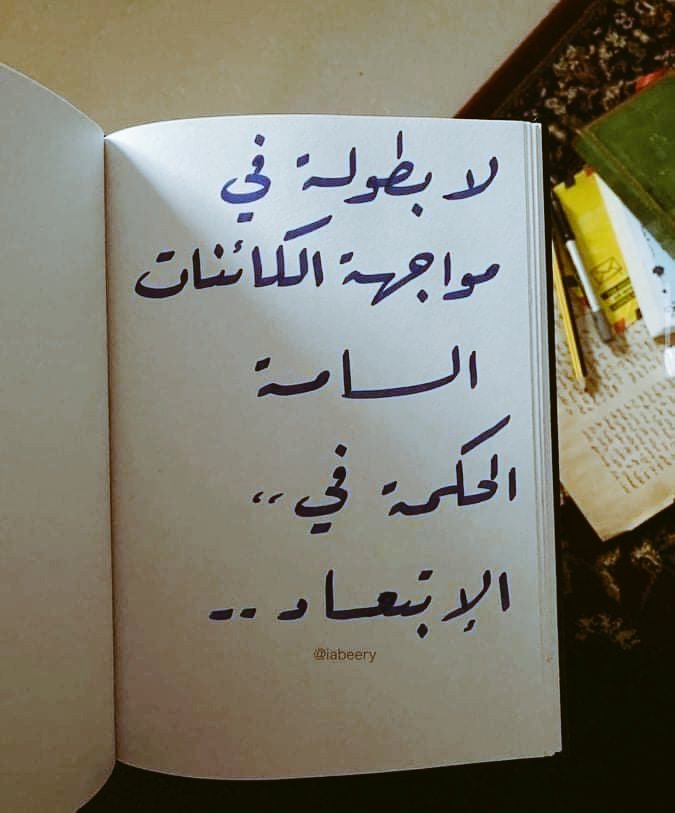 لا بطولة في
مواجهة الكائنات
السامة
الحكمة في ،،
الإبتعاد ..
@iabeery